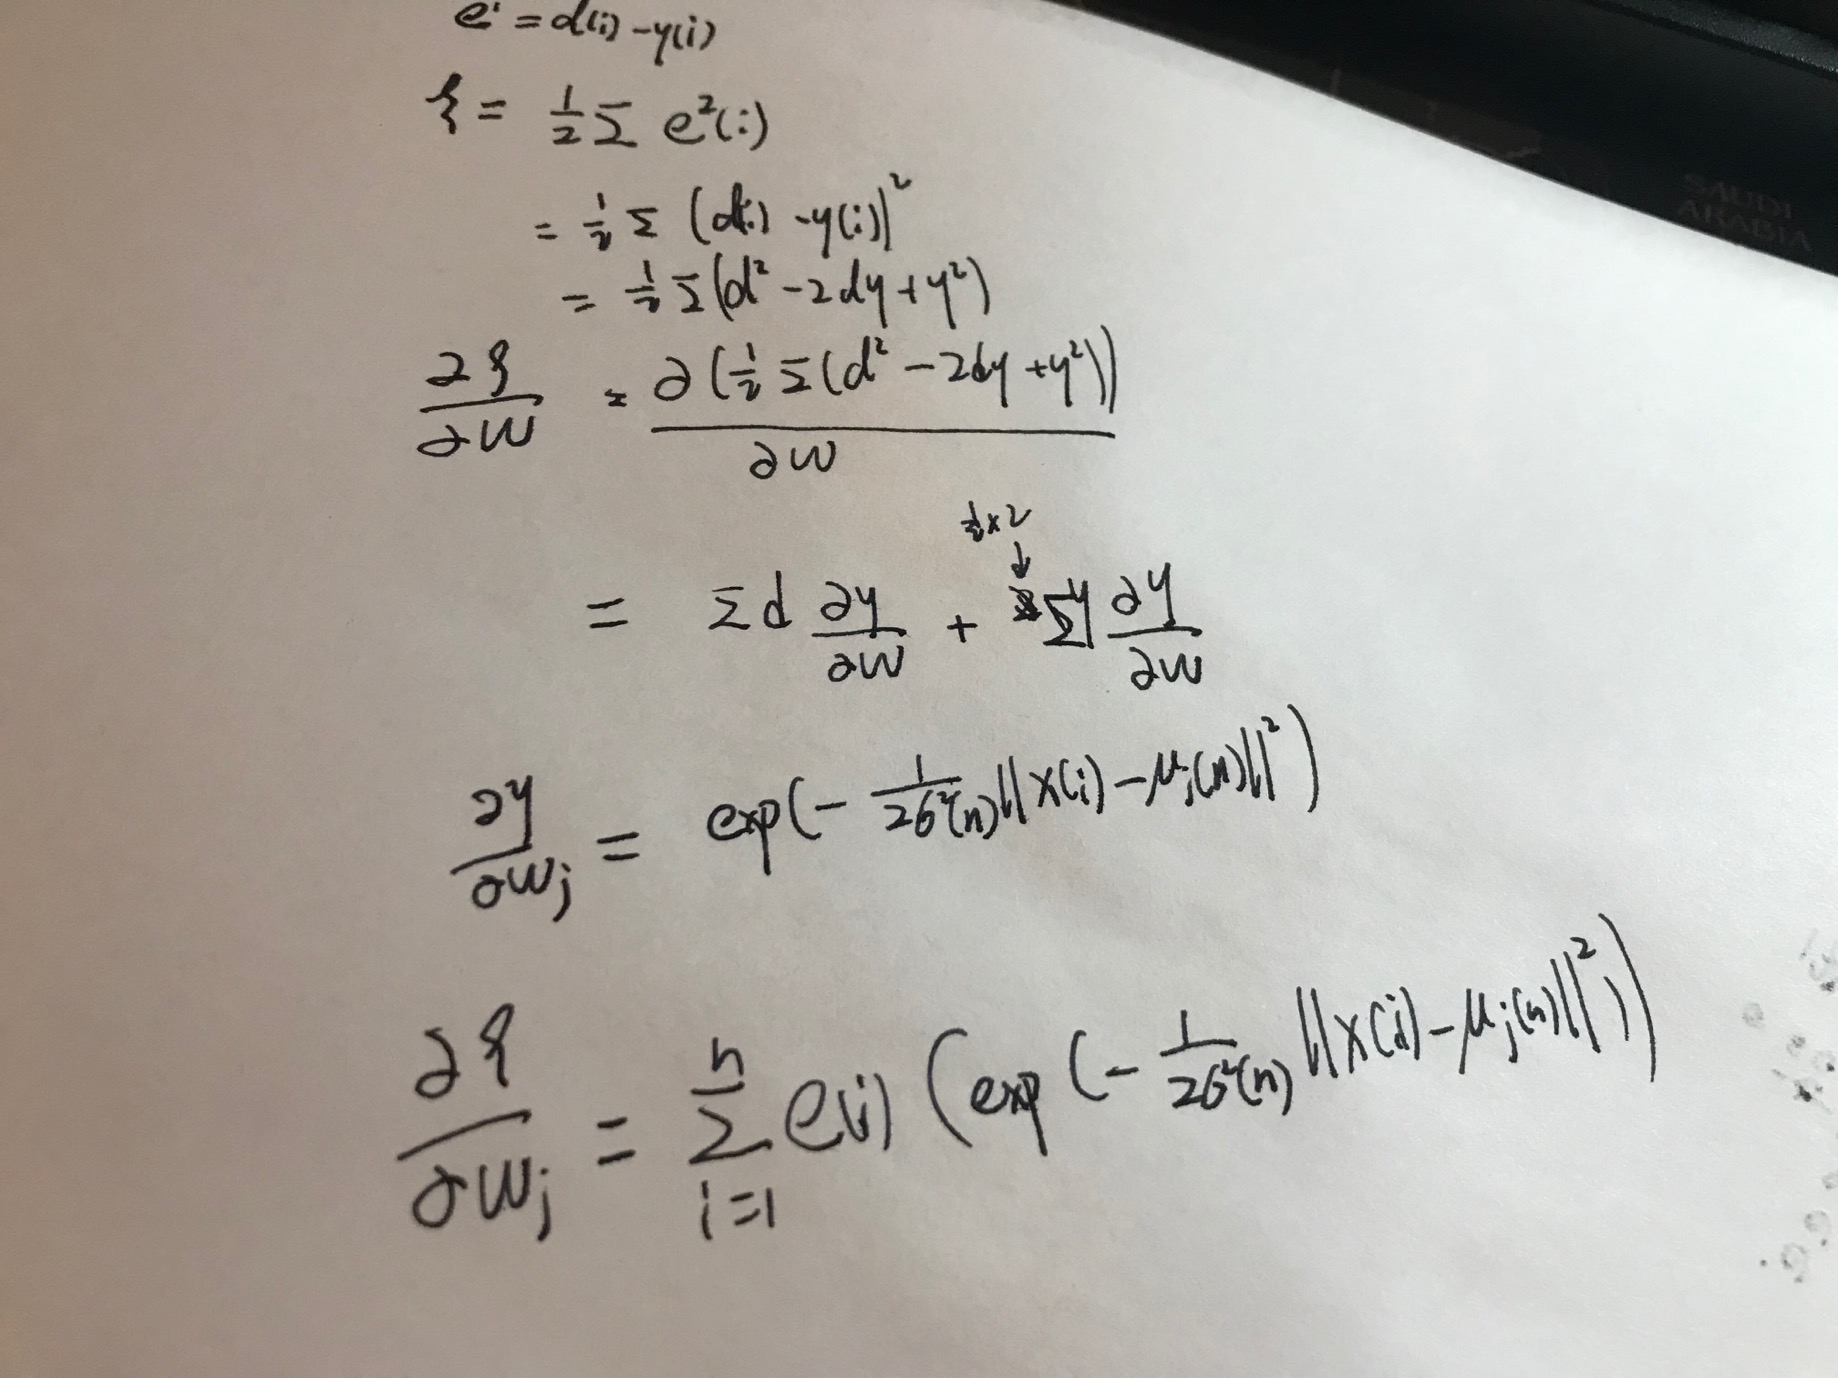 e^i = d(i) - y(i)
ξ = 1/2 Σ e²(i)
= 1/2 Σ (d(i) - y(i))²
= 1/2 Σ (d² - 2dy + y²)
∂ξ/∂w = ∂(1/2 Σ(d² - 2dy + y²))/∂w
1/2 × 2
↓
= Σ d ∂y/∂w + Σ y ∂y/∂w
∂y/∂w_j = exp(- 1/2σ²(n) ||x(i) - μ_j(n)||²)
∂ξ/∂w_j = Σ_{i=1}^{n} e(i) (exp(- 1/2σ²(n) ||x(i) - μ_j(n)||²))
SAUDI
ARABIA